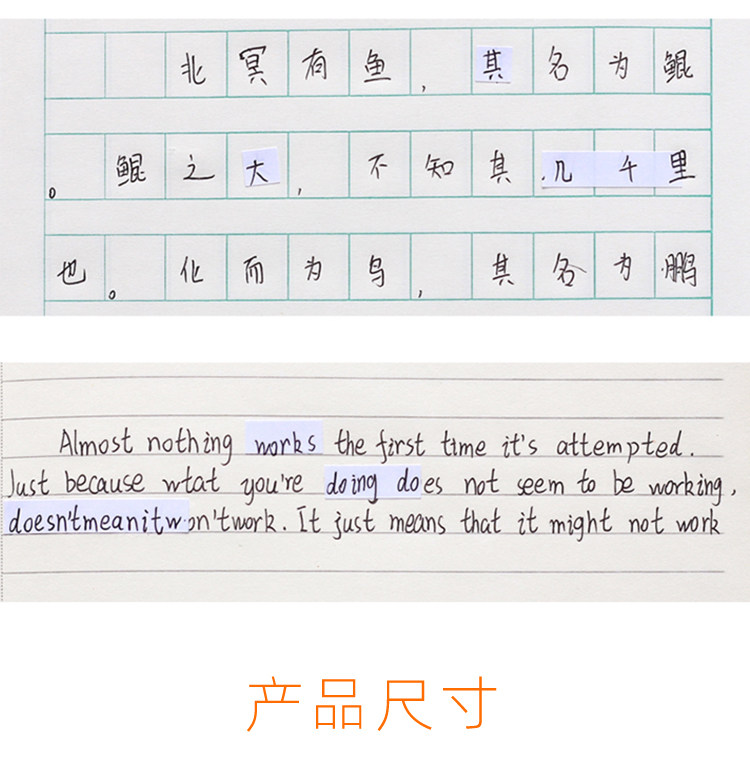 北冥有鱼，其名为鲲
。鲲之大，不知其几千里
也。化而为鸟，其名为鹏
Almost nothing works the first time it's attempted.
Just because wtat you're doing does not seem to be working,
doesn'tmeanitwon'twork. It just means that it might not work
产品尺寸